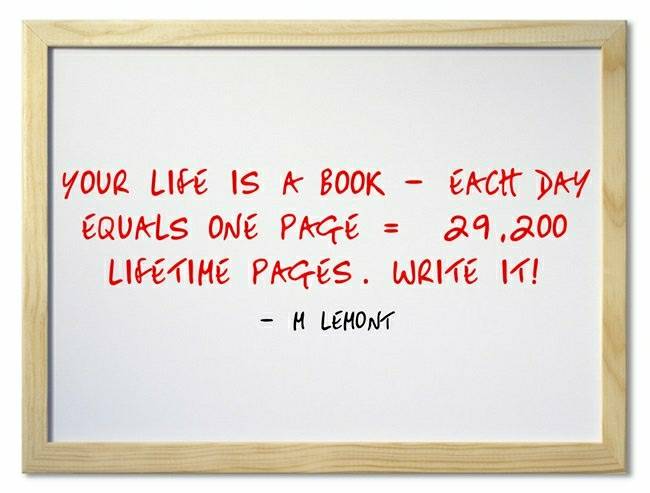 YOUR LIFE IS A BOOK - EACH DAY
EQUALS ONE PAGE = 29,200
LIFETIME PAGES. WRITE IT!
- M LEMONT